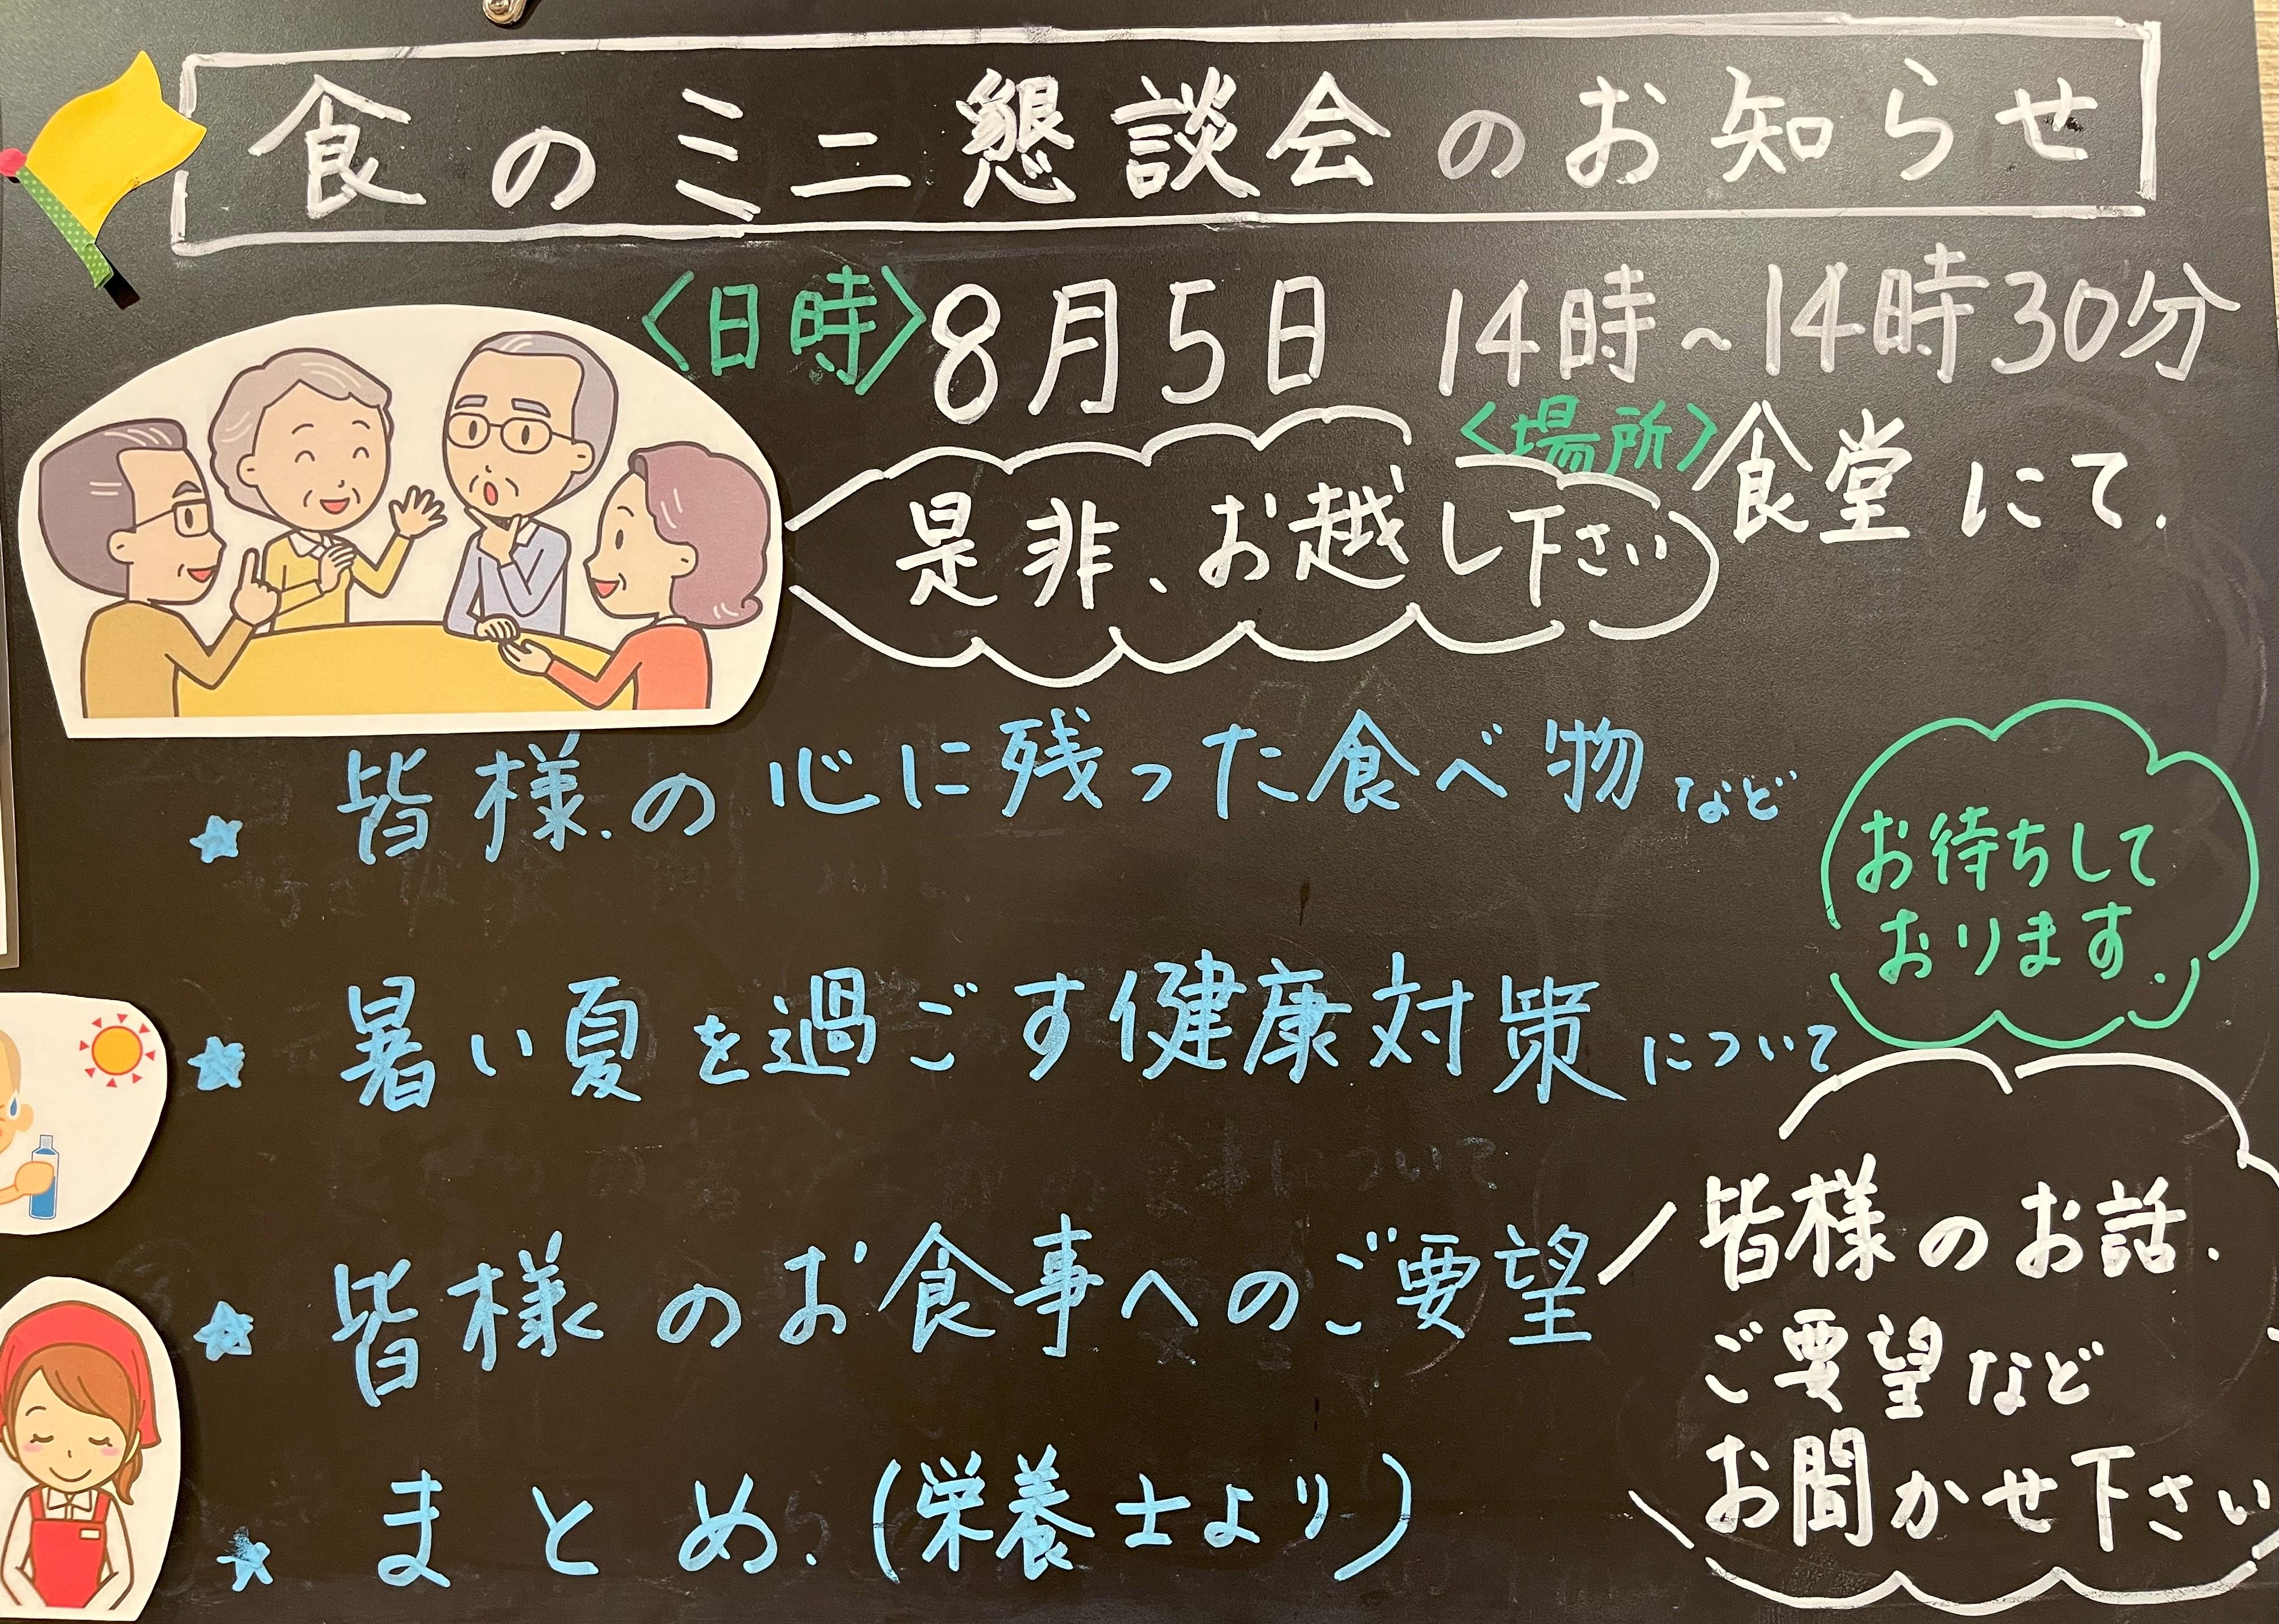 食のミニ懇談会のお知らせ
<日時>8月5日 14時~14時30分
<場所>食堂にて.
是非、お越し下さい
★ 皆様.の心に残った食べ物など
お待ちして
おります.
★ 暑い夏を過ごす健康対策について
★ 皆様のお食事へのご要望
皆様のお話.
ご要望など
お聞かせ下さい
★ まとめ.(栄養士より)